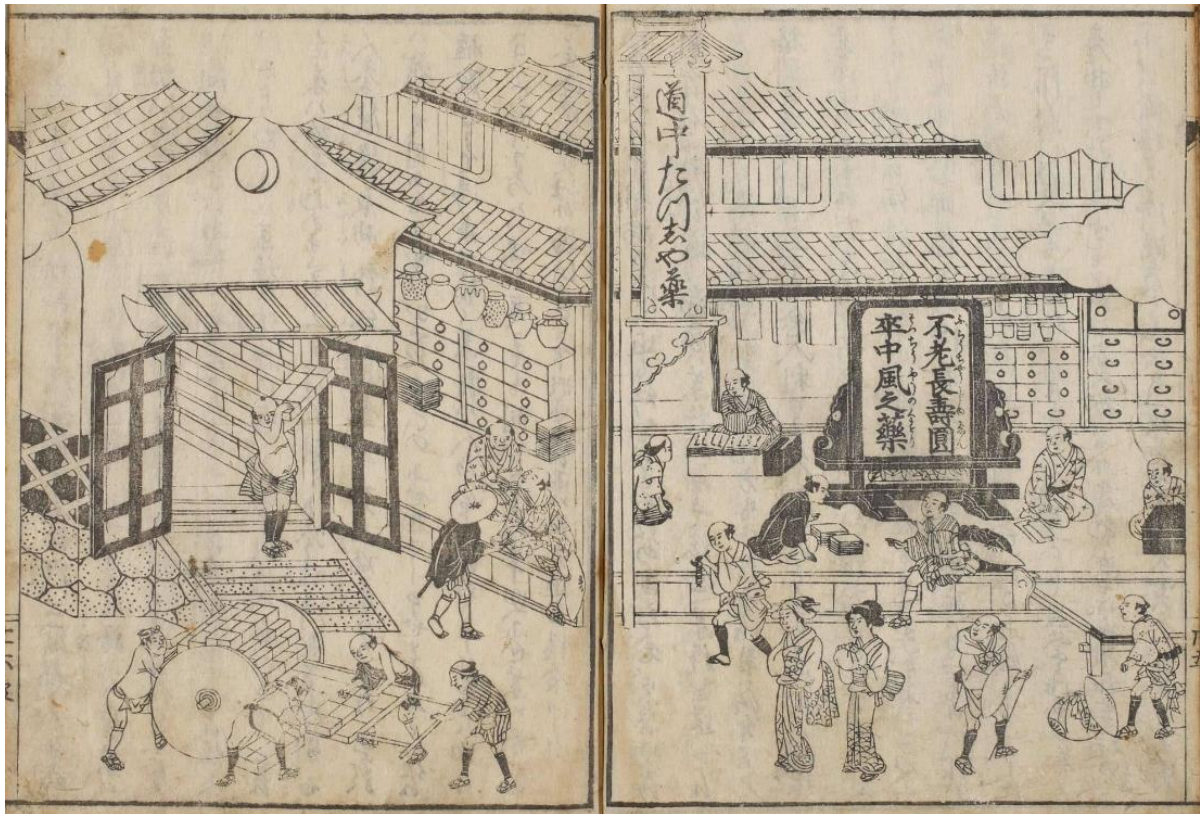 道中たつ志や藥
不老長壽圓
卒中風之藥